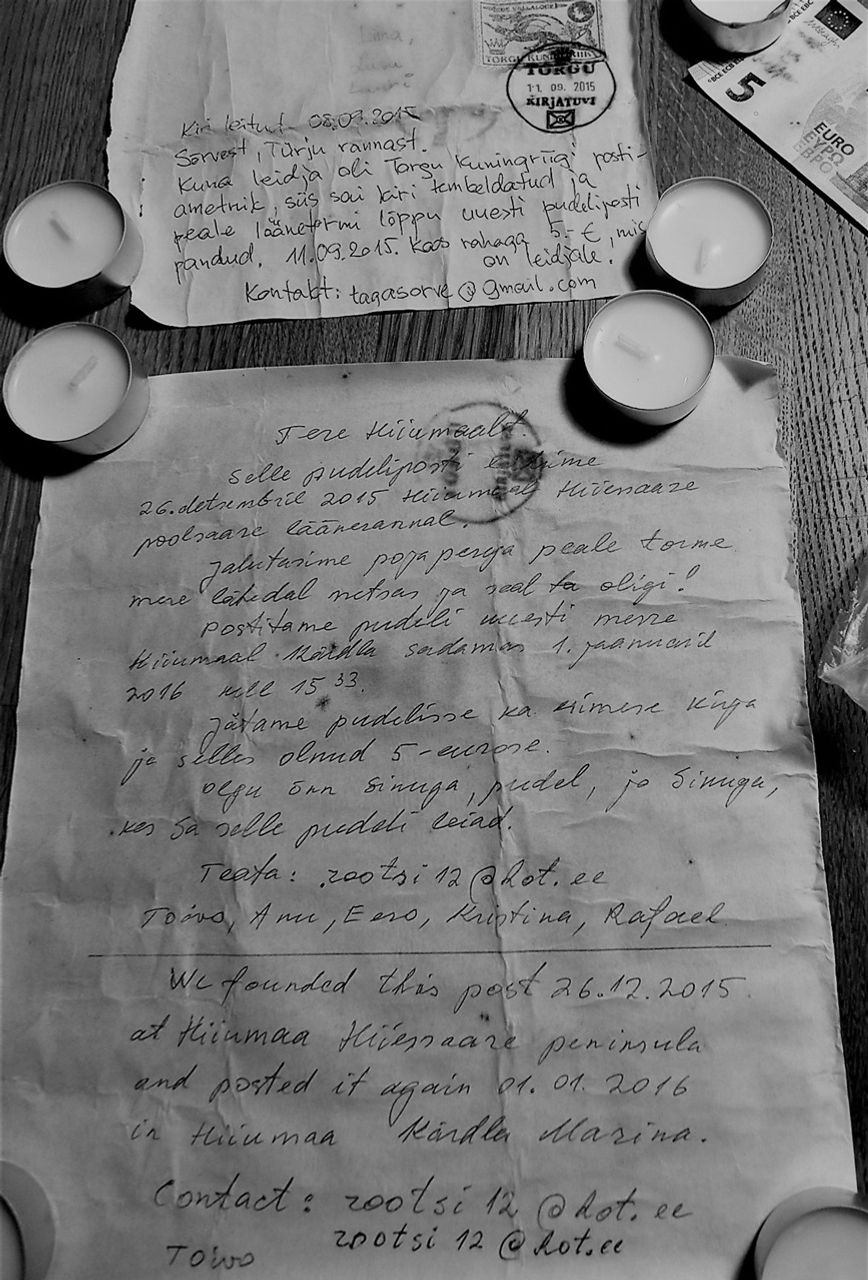 TORGU KUNINGRIIK
TORGU
11. 09. 2015
KIRJATUVI
BCE ECB
5
EURO
ΕΥΡΩ
ЕВРО
Kiri leitud 08.09.2015
Sõrvest, Türju rannast.
Kuna leidja oli Torgu Kuningriigi posti-
ametnik, siis sai kiri tembeldatud ja
peale läänetormi lõppu uuesti pudeliposti
pandud. 11.09.2015. Koos rahaga 5.-€, mis
on leidjale.
Kontakt: tagasorve@gmail.com
Tere Hiiumaalt.
Selle pudeliposti leidsime
26.detsembril 2015 Hiiumaal Hiiessaare
poolsaare läänerannal.
Jalutasime poja perega peale torme
mere lähedal metsas ja seal ta oligi!
Postitame pudeli uuesti merre
Hiiumaal Kärdla sadamas 1. jaanuaril
2016 kell 15 33.
Jätame pudelisse ka esimese kirja
ja selles olnud 5-eurose.
Olgu õnn Sinuga, pudel, ja Sinuga,
kes Sa selle pudeli leiad.
Teata: rootsi12@hot.ee
Toivo, Anu, Eero, Kristina, Rafael
We founded this post 26.12.2015.
at Hiiumaa Hiiessaare peninsula
and posted it again 01.01.2016
in Hiiumaa Kärdla Marina.
Contact: rootsi12@hot.ee
rootsi12@hot.ee
Toivo